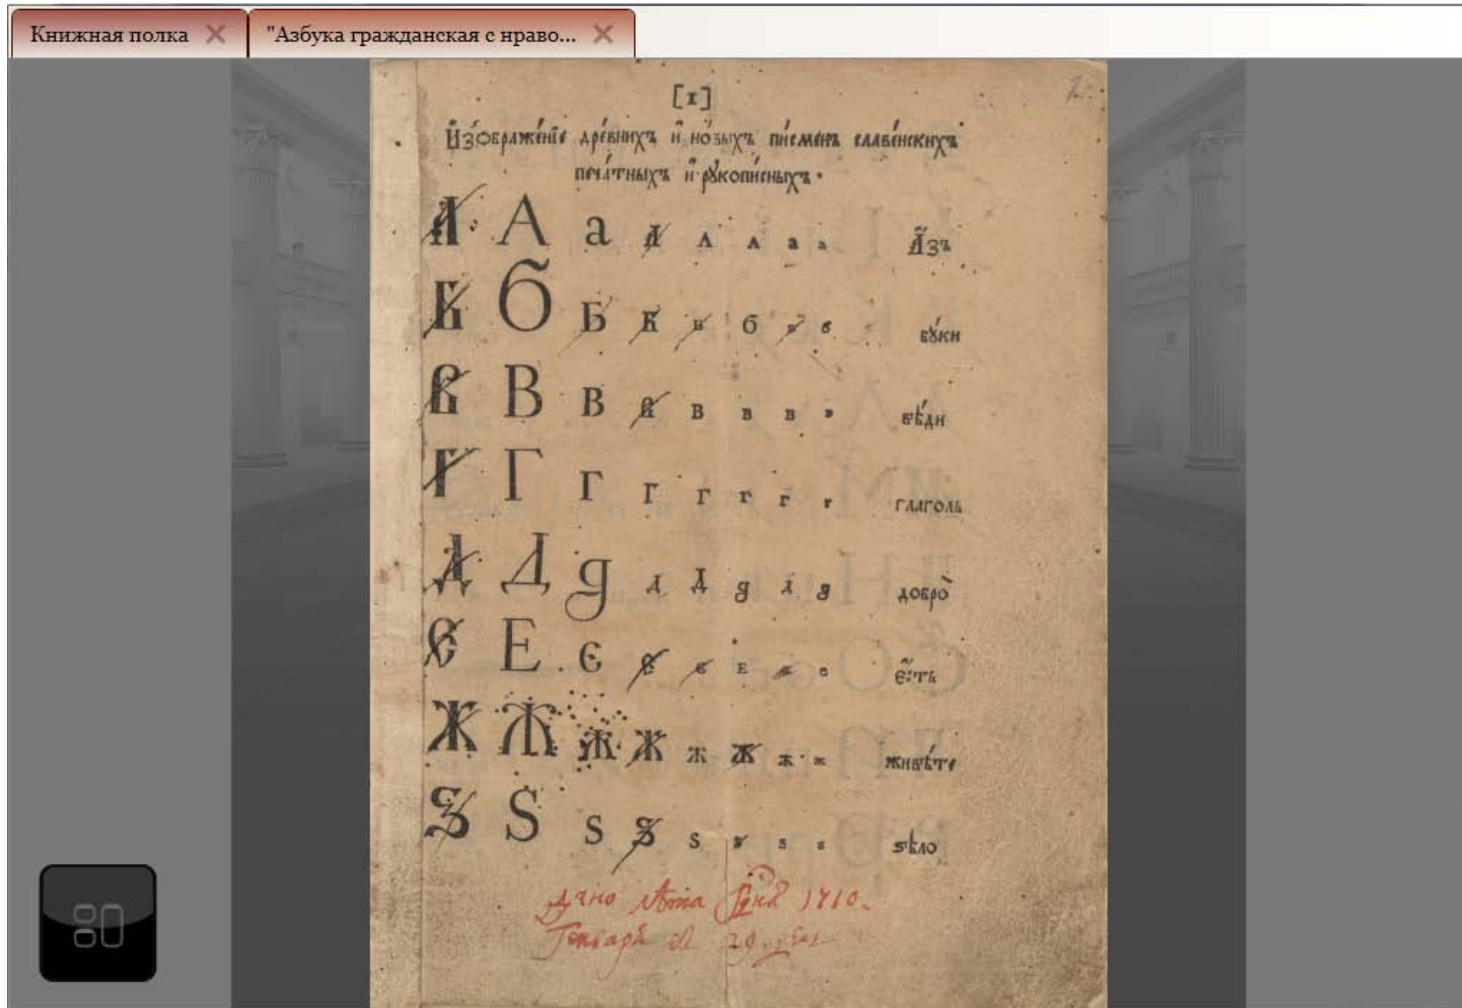 Книжная полка
"Азбука гражданская с нраво...
[1]
И҆зѡбраже́нїе дре́внихъ и҆ но́выхъ пи́сменъ славе́нскихъ
печа́тныхъ и҆ рꙋкопи́сныхъ.
А А а А А А а а А҆́зъ
Б Б Б Б Б б б б бꙋ́ки
В В В В В В В В вѣ́ди
Г Г Г Г Г Г Г Г глаголь
Д Д д Д Д д Д д добро̀
Є Е Є Є Є Е Є е є҆́сть
Ж Ж Ж Ж Ж Ж Ж Ж живѣ́те
Ѕ Ѕ Ѕ Ѕ Ѕ Ѕ Ѕ Ѕ ѕѣло
лѣта 1710.
Генваря 29.